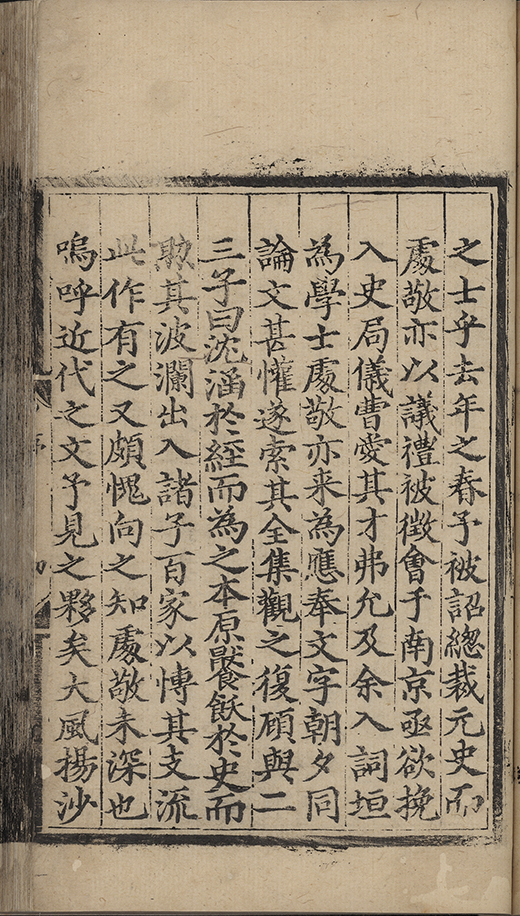 之士乎去年之春予被詔總裁元史而
處敬亦以議禮被徵會于南京亟欲挽
入史局儀曹愛其才弗允及余入詞垣
為學士處敬亦来為應奉文字朝夕同
論文甚懽遂索其全集觀之復顧與二
三子曰沈涵於経而為之本原饜飫於史而
歟其波瀾出入諸子百家以愽其支流
此作有之又頗愧向之知處敬未深也
嗚呼近代之文予見之夥矣大風揚沙